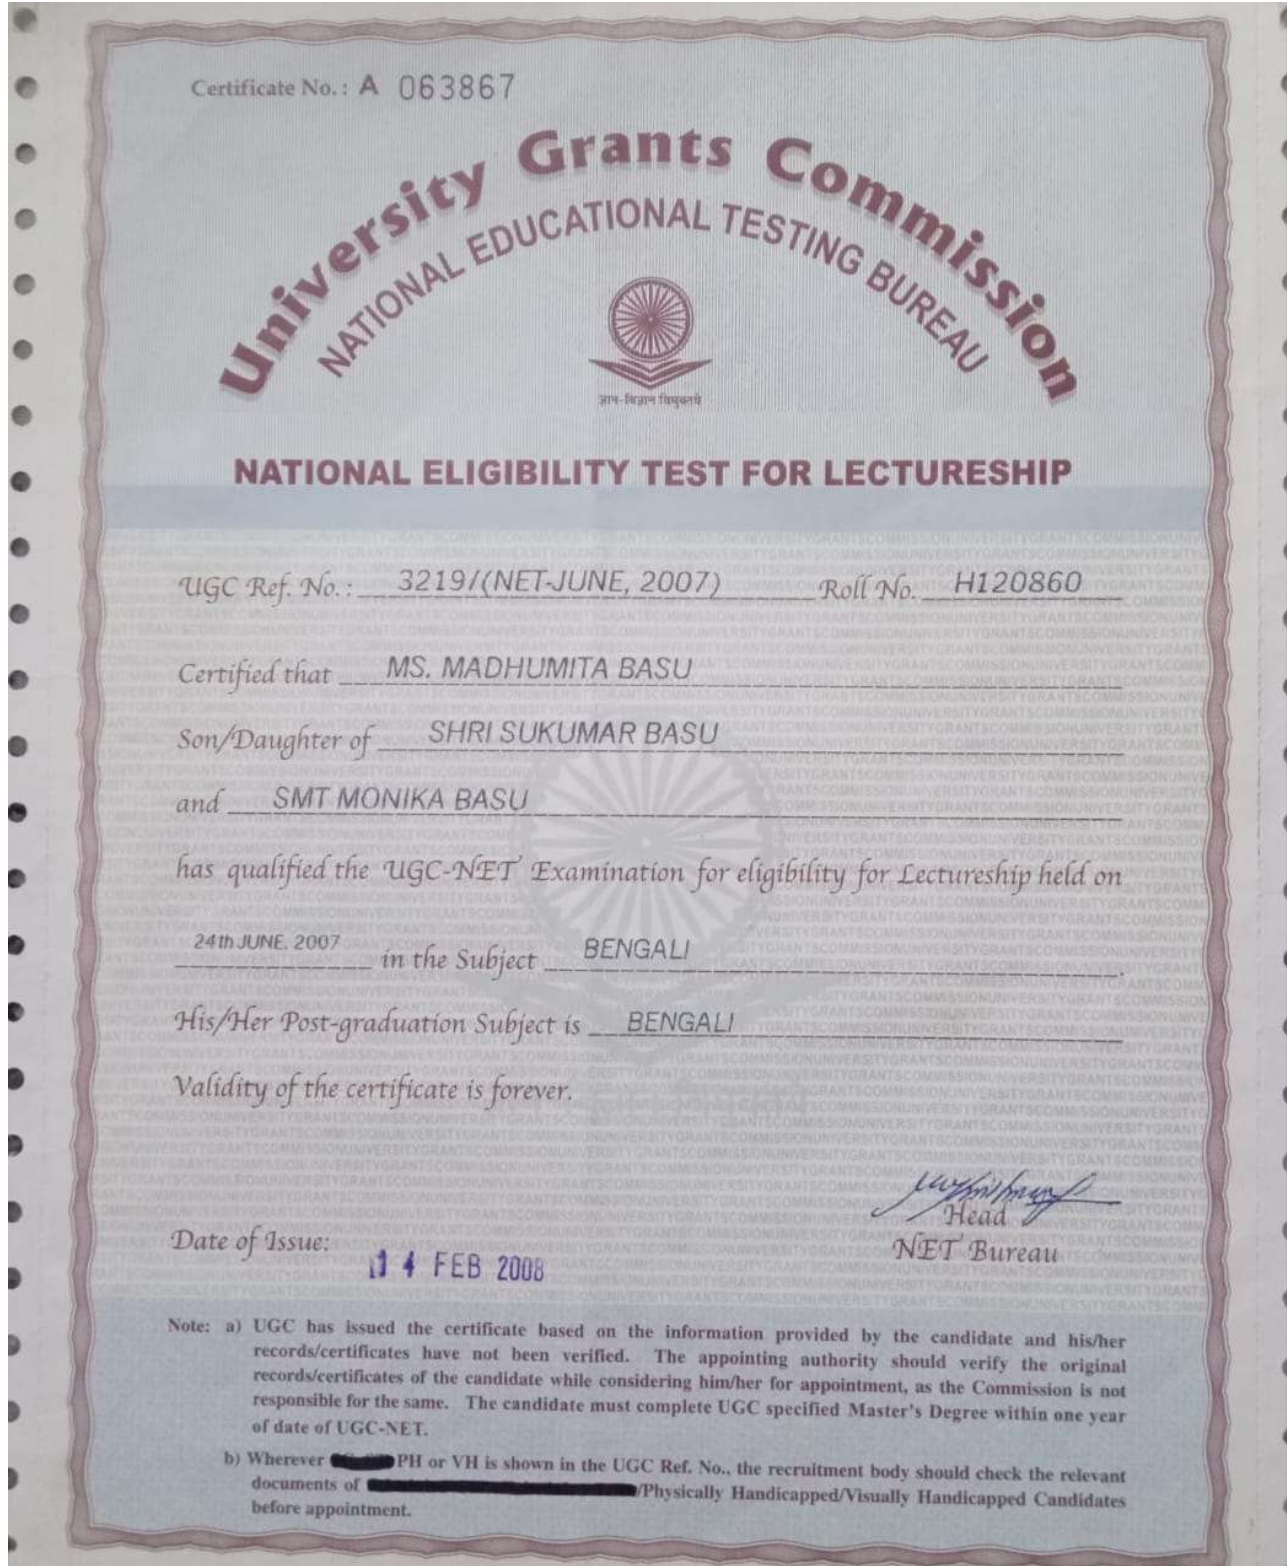 Certificate No.: A 063867
University Grants Commission
NATIONAL EDUCATIONAL TESTING BUREAU
ज्ञान-विज्ञान विमुक्तये
NATIONAL ELIGIBILITY TEST FOR LECTURESHIP
UGC Ref. No.: 3219/(NET-JUNE, 2007) Roll No. H120860
Certified that MS. MADHUMITA BASU
Son/Daughter of SHRI SUKUMAR BASU
and SMT MONIKA BASU
has qualified the UGC-NET Examination for eligibility for Lectureship held on
24th JUNE. 2007 in the Subject BENGALI.
His/Her Post-graduation Subject is BENGALI
Validity of the certificate is forever.
Head
Date of Issue: 14 FEB 2008 NET Bureau
Note: a) UGC has issued the certificate based on the information provided by the candidate and his/her
records/certificates have not been verified. The appointing authority should verify the original
records/certificates of the candidate while considering him/her for appointment, as the Commission is not
responsible for the same. The candidate must complete UGC specified Master's Degree within one year
of date of UGC-NET.
b) Wherever PH or VH is shown in the UGC Ref. No., the recruitment body should check the relevant
documents of /Physically Handicapped/Visually Handicapped Candidates
before appointment.